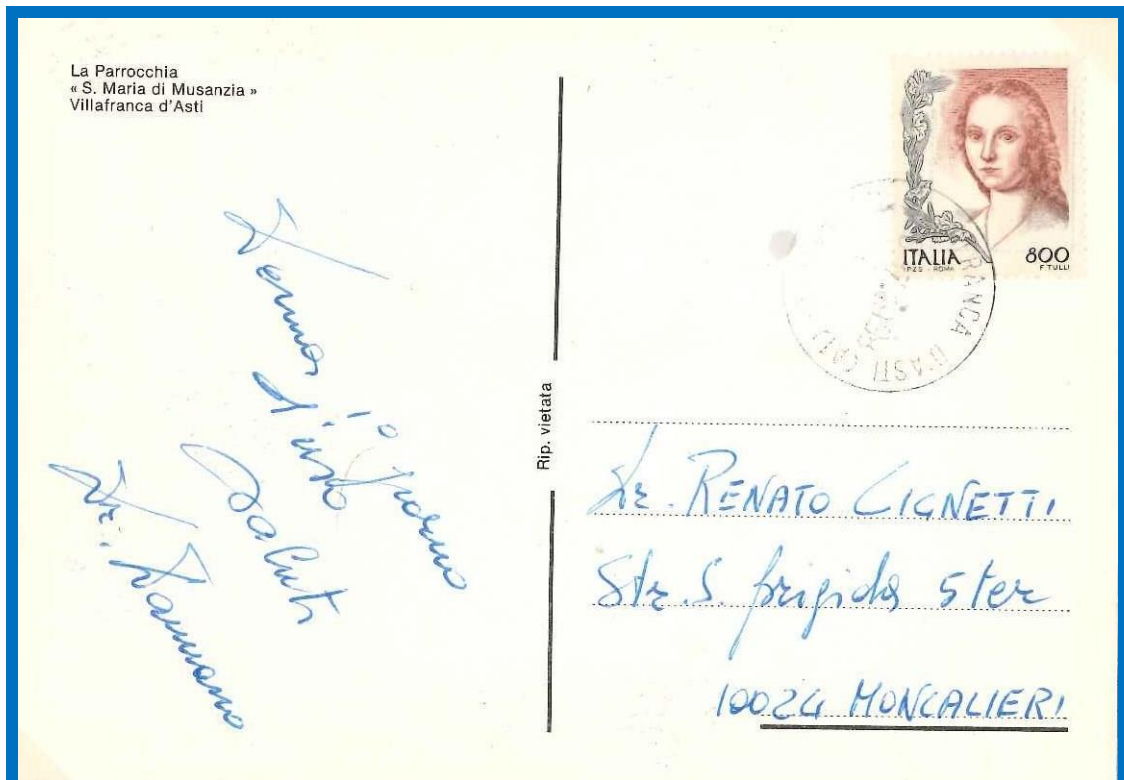 La Parrocchia
« S. Maria di Musanzia »
Villafranca d'Asti
1° giorno
d'uso
Saluti
Dr.
Rip. vietata
ITALIA
800
I.P.Z.S. - ROMA
F. TULLI
RANCA D'ASTI
Dr. RENATO CIGNETTI
Str. S. Brigida 5 ter
10024 MONCALIERI